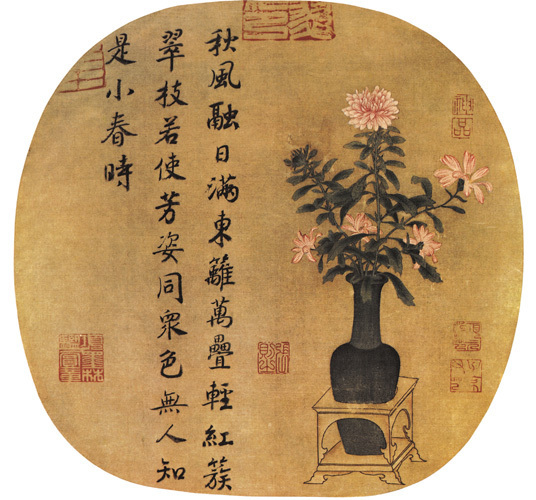 秋風融日滿東籬萬疊輕紅簇
翠枝若使芳姿同眾色無人知
是小春時
神品